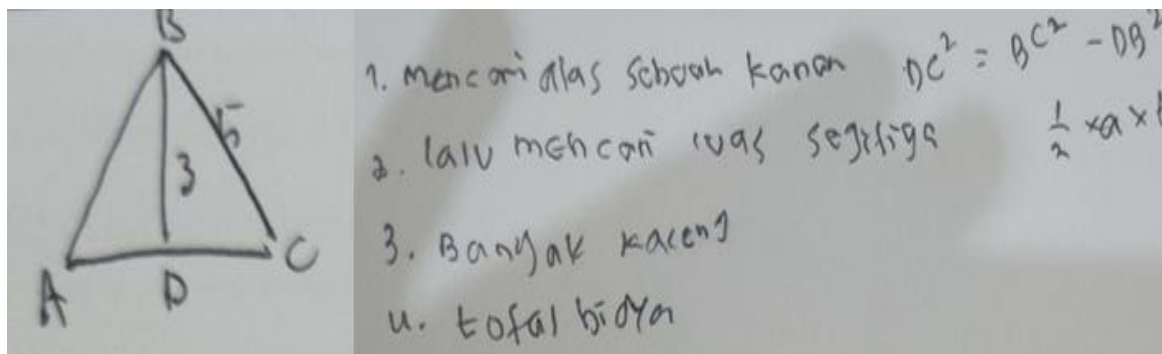 B
5
3
A D C
1. Mencari alas sebuah kanan DC² = BC² - DB²
2. lalu mencari luas segitiga ½ × a × t
3. Banyak kaceng
4. total biaya